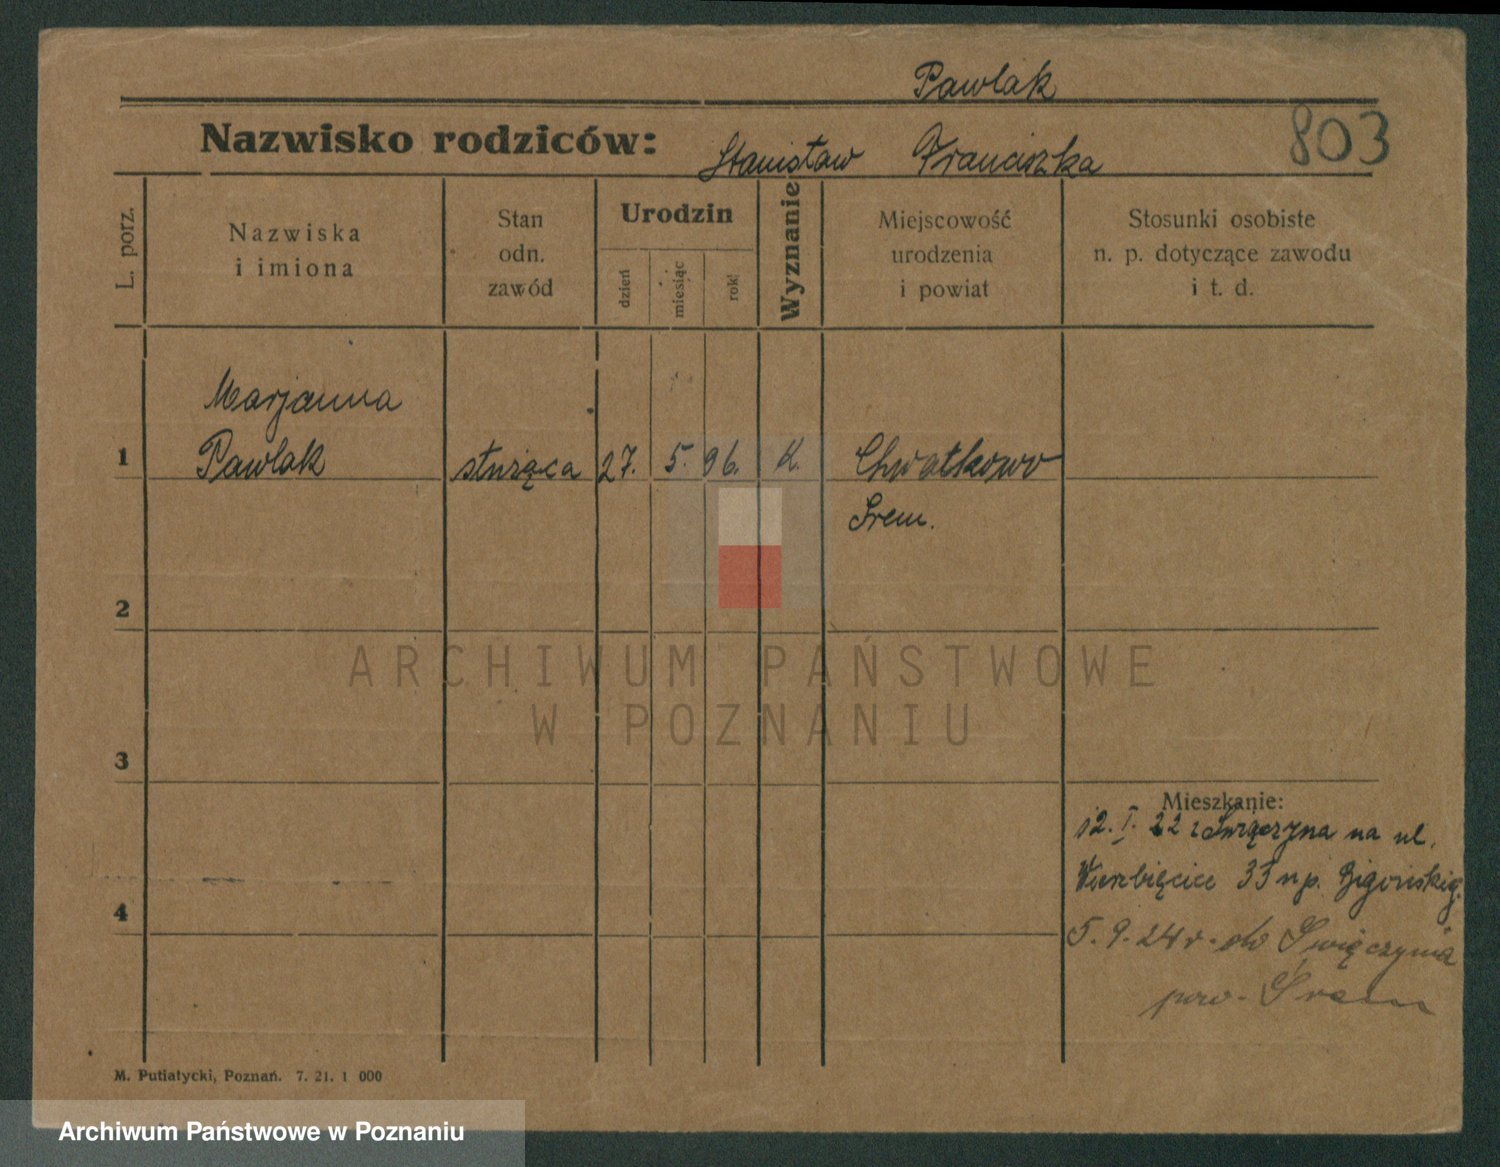 Pawlak
Nazwisko rodziców: Stanisław Franciszka
803
L. porz.
Nazwiska
i imiona
Stan
odn.
zawód
Urodzin
dzień
miesiąc
rok
Wyznanie
Miejscowość
urodzenia
i powiat
Stosunki osobiste
n. p. dotyczące zawodu
i t. d.
Marjanna
1 Pawlak służąca 27. 5. 96. k. Chwałkowo
Śrem.
2
ARCHIWUM PAŃSTWOWE
W POZNANIU
3
Mieszkanie:
12. I. 22 z Święczyna na ul.
Wierzbięcice 35 u p.
4
5. 9. 24 r. do Święczynia
pow. Śrem
M. Putiatycki, Poznań. 7. 21. 1 000
Archiwum Państwowe w Poznaniu